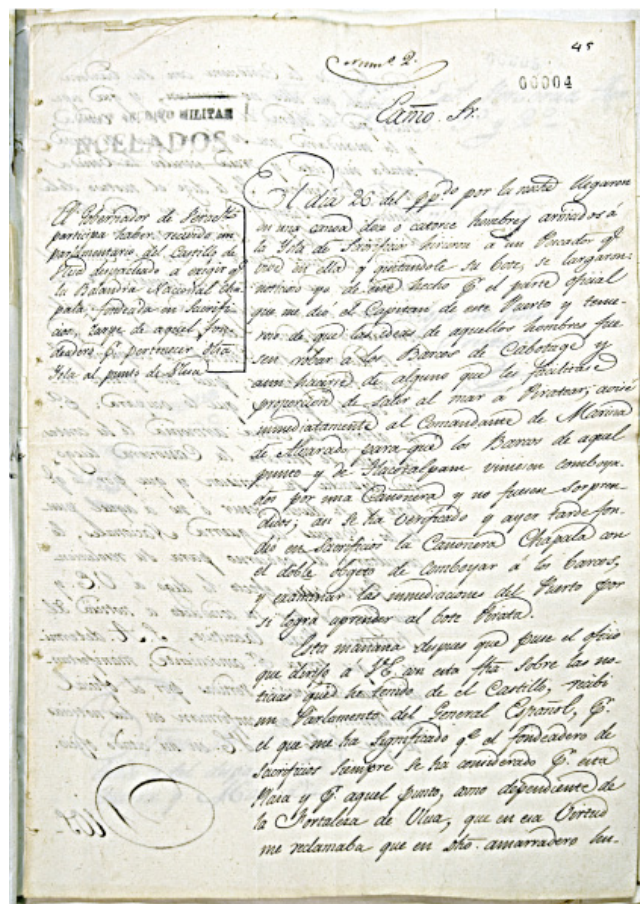 Num.º 2.
45
00004
Exmo. Sr.
El Gobernador de
participa haber recivido un
parlamentario del Castillo de
Ulua despachado a exigir q.e
la Balandra Nacional Cha-
pala, fondeada en Sacrifi-
cios, large de aquel fon-
deadero p.r pertenecer dha
Ysla al punto de Ulua
El dia 26 del pp.do por la noche llegaron
en una canoa doce o catorce hombres armados á
la Ysla de Sacrificios hirieron á un Pescador q.e
vive en ella y quitandole su bote, se largaron:
noticioso yo de este hecho p.r el parte oficial
que me dió el Capitan de este Puerto y teme-
roso de que las ideas de aquellos hombres fue-
sen robar á los Barcos de Cabotage y
aun hacerse de alguno que les facilitase
proporcion de salir al mar á Piratear; avisé
inmediatamente al Comandante de Marina
de Alvarado para que los Barcos de aquel
punto y de Tlacotalpam viniesen comboya-
dos por una Cañonera y no fuesen sorpren-
didos; asi se ha verificado y ayer tarde fon-
deó en Sacrificios la Cañonera Chapala con
el doble objeto de comboyar á los barcos,
y examinar las inmediaciones del Puerto por
si logra aprender al bote Pirata.
Esta mañana despues que puse el oficio
que dirijo a V.E. con esta fha sobre las no-
ticias que he tenido de el Castillo, recibi
un Parlamento del General Español, p.r
el que me ha significado q.e el fondeadero de
Sacrificios siempre se ha considerado p.r esta
Plaza y p.r aquel punto, como dependiente de
la Fortaleza de Ulua, que en esa Virtud
me reclamaba que en dho. amarradero